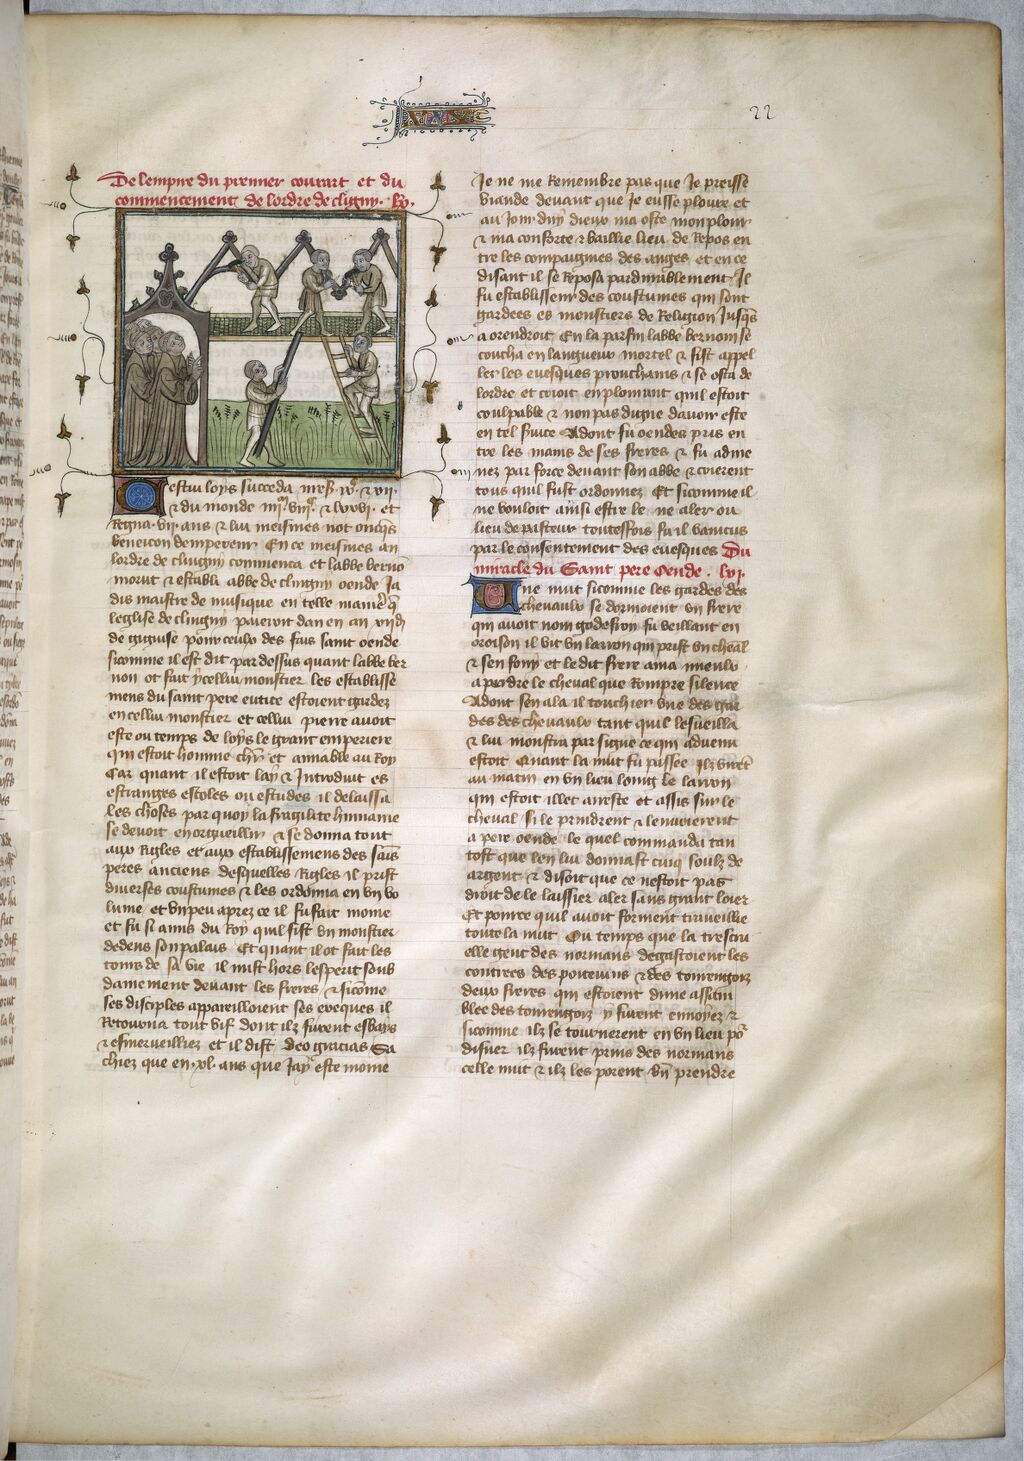 22
De lempire du premier conrart et du
commencement de lordre de cligny. lv.
estui loys succeda
& du monde et
Regna .vii. ans & lui meismes not onqs
beneicon dempereur En ce meismes an
lordre de clingny commenca et labbe berno
morut & establi abbe de clingny oende Ja
dis maistre de musique en telle manie q
leglise de clingny paieroit dan en an
de guguise pour ceulx des fais saint oende
sicomme il est dit par dessus quant labbe ber
non ot fait ycellui monstier les establisse
mens du saint pere eutice estoient gardez
en cellui monstier et cellui pierre auoit
este ou temps de loys le grant emperiere
qui estoit homme et amiable au Roy
Car quant il estoit lay & Introduit es
estranges escoles ou estudes il delaissa
les choses par quoy la fragilite humaine
se deuoit enorgueillir & se donna tout
aux Rigles et aux establissemens des sais
peres anciens desquelles Rigles il prist
diuerses coustumes & les ordonna en vn vo
lume et vn peu aprez ce il fu fait mome
et fu si amis du Roy quil fist vn monstier
dedens son palais Et quant il ot fait les
tours de sa vie il mist hors lesperit soub
dainement deuant les freres & sicome
ses disciples appareilloient ses exeques il
Retourna tout vif dont ilz furent esbays
& esmerueilliez et il dist deo gracias Sa
chiez que en .xl. ans que Jay este mome
Je ne me Remembre pas que Je preisse
viande deuant que Je eusse ploure et
au Jour duy dieux ma oste mon plour
& ma conforte & baillie lieu de Repos en
tre les compaignies des anges et en ce
disant il se Reposa pardurablement Il
fu establisseur des coustumes qui sont
gardees es monstiers de Religion Jusqs
a orendroit En la parfin labbe bernon se
coucha en langueur mortel & fist appel
ler les euesques prouchains & se osta de
lordre et crioit en plourant quil estoit
coulpable & non pas digne dauoir este
en tel seruice Adont fu oendes pris en
tre les mains de ses freres & fu adme
nez par force deuant son abbe & crierent
tous quil fust ordonnez Et sicomme il
ne vouloit ainsi estre le ne aler ou
lieu de pasteur toutesfois fu il vaincus
par le consentement des euesques Du
miracle du Saint pere Oende . lvi.
ne nuit sicomme les gardes des
cheuaulx se dormoient vn frere
qui auoit nom godefron fu veillant en
oroison il vit vn larron qui prist vn cheual
& sen fouy et le dit frere ama mieulx
a perdre le cheual que Rompre silence
Adont sen ala il touchier vne des gar
des des cheuaulx tant quil lesueilla
& lui monstra par signe ce qui aduenu
estoit Quant la nuit fu passee Ilz virent
au matin en vn lieu loing le larron
qui estoit illec arreste et assis sur le
cheual Si le prindrent & lenuoierent
a pere oende le quel commanda tan
tost que len lui donnast cinq soulz de
argent & disoit que ce nestoit pas
droit de le laissier aler sans grant loier
Et pource quil auoit forment trauaillie
toute la nuit Ou temps que la trescru
elle gent des normans degastoient les
contrees des poiteuins & des tourengois
deux freres qui estoient dune assem
blee des tourengois y furent enuoyez &
sicomme ilz se tournerent en vn lieu po
disner ilz furent prins des normans
celle nuit & ilz les porent bn prendre